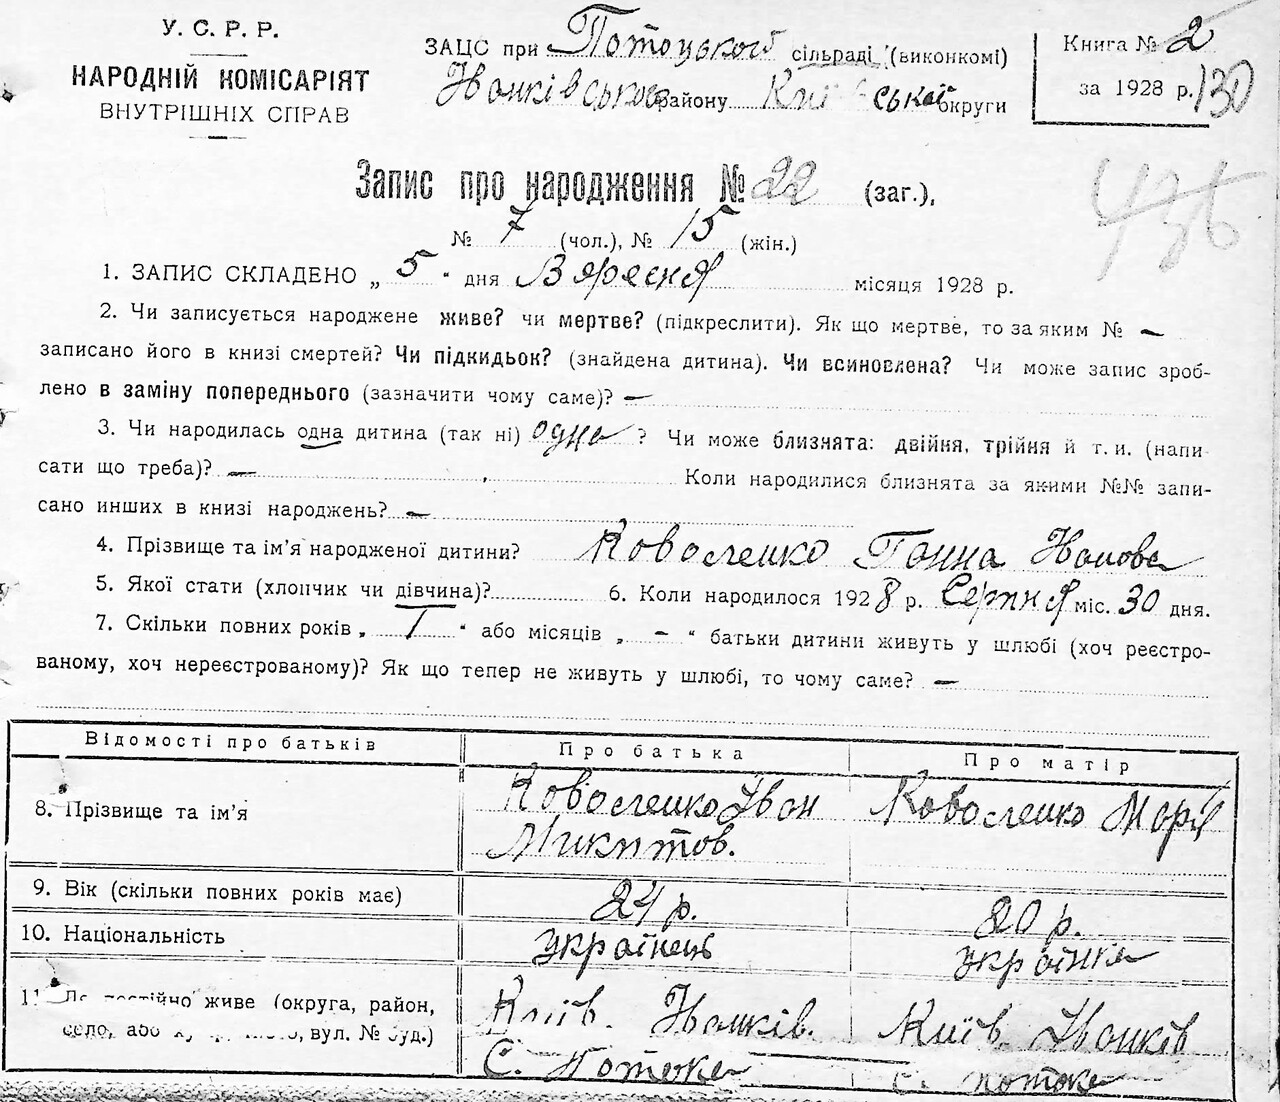 У. С. Р. Р.
НАРОДНІЙ КОМІСАРІЯТ
ВНУТРІШНІХ СПРАВ
ЗАЦС при Потоцького сільраді (виконкомі)
Іванківського району Київської округи
Книга № 2
за 1928 р. 130
436
Запис про народження № 22 (заг.),
№ 7 (чол.), № 15 (жін.)
1. ЗАПИС СКЛАДЕНО „ 5 “ дня Вяресня місяця 1928 р.
2. Чи записується народжене живе? чи мертве? (підкреслити). Як що мертве, то за яким № —
записано його в книзі смертей? Чи підкидьок? (знайдена дитина). Чи всиновлена? Чи може запис зроб-
лено в заміну попереднього (зазначити чому саме)? —
3. Чи народилась одна дитина (так ні) одна ? Чи може близнята: двійня, трійня й т. и. (напи-
сати що треба)? — Коли народилися близнята за якими №№ запи-
сано инших в книзі народжень? —
4. Прізвище та ім’я народженої дитини? Коваленко Ганна Іванова
5. Якої стати (хлопчик чи дівчина)? 6. Коли народилося 1928 р. Серпня міс. 30 дня.
7. Скільки повних років „ 1 “ або місяців „ — “ батьки дитини живуть у шлюбі (хоч реєстро-
ваному, хоч нереєстрованому)? Як що тепер не живуть у шлюбі, то чому саме? —
Відомості про батьків Про батька Про матір
8. Прізвище та ім’я Коваленко Іван Микитов. Коваленко Марія
9. Вік (скільки повних років має) 24 р. 20 р.
10. Національність українець українка
11. Де постійно живе (округа, район, Київ. Іванків. Київ. Іванків
село, або вул. № буд.) С. Потоки с. Потоки